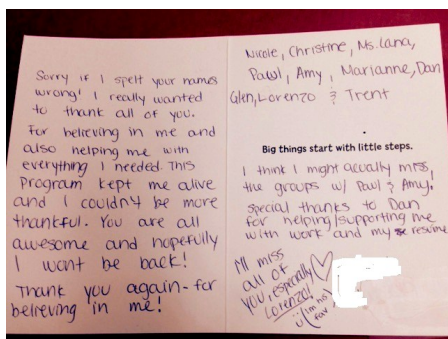 Sorry if I spelt your names
wrong! I really wanted
to thank all of you.
For believing in me and
also helping me with
everything I needed. This
Program kept me alive
and I couldn't be more
thankful. You are all
awesome and hopefully
I wont be back!
Thank you again - for
believing in me!
Nicole, Christine, Ms. Lana,
Paul, Amy, Marianne, Dan
Glen, Lorenzo & Trent
Big things start with little steps.
I think I might acually miss
the groups w/ Paul & Amy!
special thanks to Dan
for helping/supporting me
with work and my resume
I'll miss
all of
you, especially
Lorenzo!
(im his
fav)